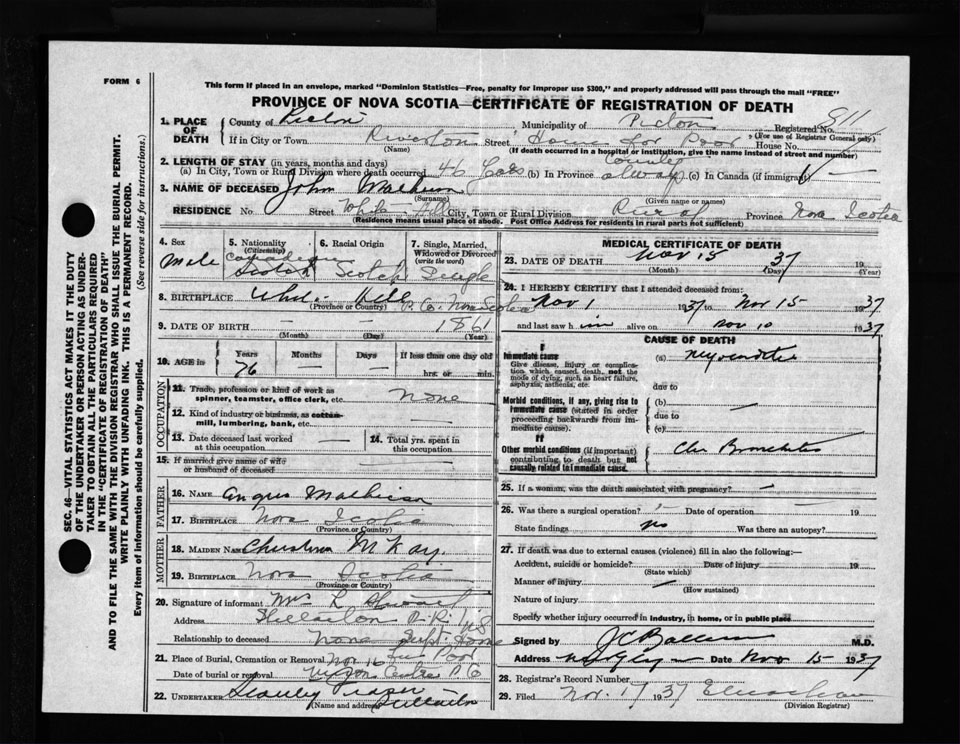 FORM 6
This form if placed in an envelope, marked "Dominion Statistics—Free, penalty for improper use $300," and properly addressed will pass through the mail "FREE"
PROVINCE OF NOVA SCOTIA—CERTIFICATE OF REGISTRATION OF DEATH
1. PLACE OF DEATH
County of Pictou Municipality of Pictou Registered No. 811
(For use of Registrar General only)
If in City or Town Riverton Street House for Poor House No.
(Name) (If death occurred in a hospital or institution, give the name instead of street and number)
2. LENGTH OF STAY (in years, months and days) County
(a) In City, Town or Rural Division where death occurred 46 (b) In Province always (c) In Canada (if immigrant) —
3. NAME OF DECEASED John Matheson
(Surname) (Given name or names)
RESIDENCE No. Street White Hill City, Town or Rural Division Rural Province Nova Scotia
(Residence means usual place of abode. Post Office Address for residents in rural parts not sufficient)
4. Sex Male
5. Nationality (Citizenship) Canadian
6. Racial Origin Scotch
7. Single, Married, Widowed or Divorced (write the word) Single
8. BIRTHPLACE White Hill P. Co. Nova Scotia
(Province or Country)
9. DATE OF BIRTH — — 1861
(Month) (Day) (Year)
10. AGE in Years Months Days If less than one day old
76 — — hrs. or min.
OCCUPATION
11. Trade, profession or kind of work as spinner, teamster, office clerk, etc. None
12. Kind of industry or business, as cotton-mill, lumbering, bank, etc. —
13. Date deceased last worked at this occupation —
14. Total yrs. spent in this occupation —
15. If married give name of wife or husband of deceased —
FATHER
16. NAME Angus Matheson
17. BIRTHPLACE Nova Scotia
(Province or Country)
MOTHER
18. MAIDEN NAME Christena McKay.
19. BIRTHPLACE Nova Scotia
(Province or Country)
20. Signature of informant Mrs L
Address Stellarton R.R. N.S
Relationship to deceased None Supt. Home for Poor
21. Place of Burial, Cremation or Removal
Date of burial or removal Nov 16 Centre P Co
22. UNDERTAKER Stanley Fraser Stellarton
(Name and address)
MEDICAL CERTIFICATE OF DEATH
23. DATE OF DEATH Nov 15 37 19
(Month) (Day) (Year)
24. I HEREBY CERTIFY that I attended deceased from:
Nov 1 1937 to Nov 15 1937
and last saw him alive on Nov 10 1937
CAUSE OF DEATH
I
Immediate cause
Give disease, injury or complication which caused death, not the mode of dying, such as heart failure, asphyxia, asthenia, etc.
(a) Myocarditis
due to
Morbid conditions, if any, giving rise to immediate cause (stated in order proceeding backwards from immediate cause).
(b) —
due to
(c)
II
Other morbid conditions (if important) contributing to death but not causally related to immediate cause.
Chr Bronchitis
25. If a woman, was the death associated with pregnancy? —
26. Was there a surgical operation? — Date of operation — 19
State findings no Was there an autopsy?
27. If death was due to external causes (violence) fill in also the following:—
Accident, suicide or homicide? Date of injury 19
(State which)
Manner of injury —
(How sustained)
Nature of injury
Specify whether injury occurred in industry, in home, or in public place
Signed by M.D.
Address Date Nov 15 1937
28. Registrar's Record Number
29. Filed Nov. 17 1937
(Division Registrar)
SEC. 46—VITAL STATISTICS ACT MAKES IT THE DUTY OF THE UNDERTAKER OR PERSON ACTING AS UNDERTAKER TO OBTAIN ALL THE PARTICULARS REQUIRED IN THE "CERTIFICATE OF REGISTRATION OF DEATH" AND TO FILE THE SAME WITH THE DIVISION REGISTRAR WHO SHALL ISSUE THE BURIAL PERMIT.
WRITE PLAINLY WITH UNFADING INK. THIS IS A PERMANENT RECORD.
Every item of information should be carefully supplied. (See reverse side for instructions.)